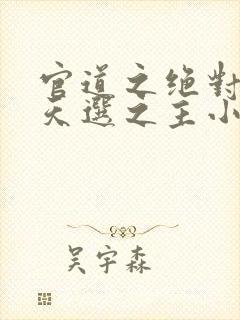 官道之绝對
天選之主小
吴宇森